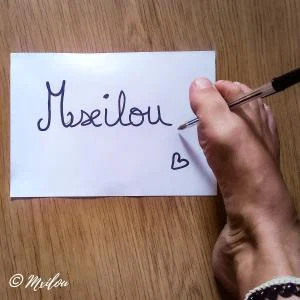 Mxeilou
© Mxilou